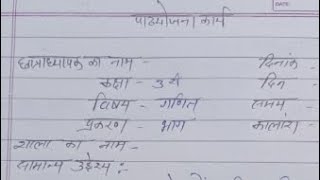 पाठ्योजना कार्य
DATE:
छात्राध्यापक का नाम - दिनांक -
कक्षा - 3 री दिन -
विषय - गणित समय -
प्रकरण - भाग कालांश -
शाला का नाम -
सामान्य उद्देश्य :